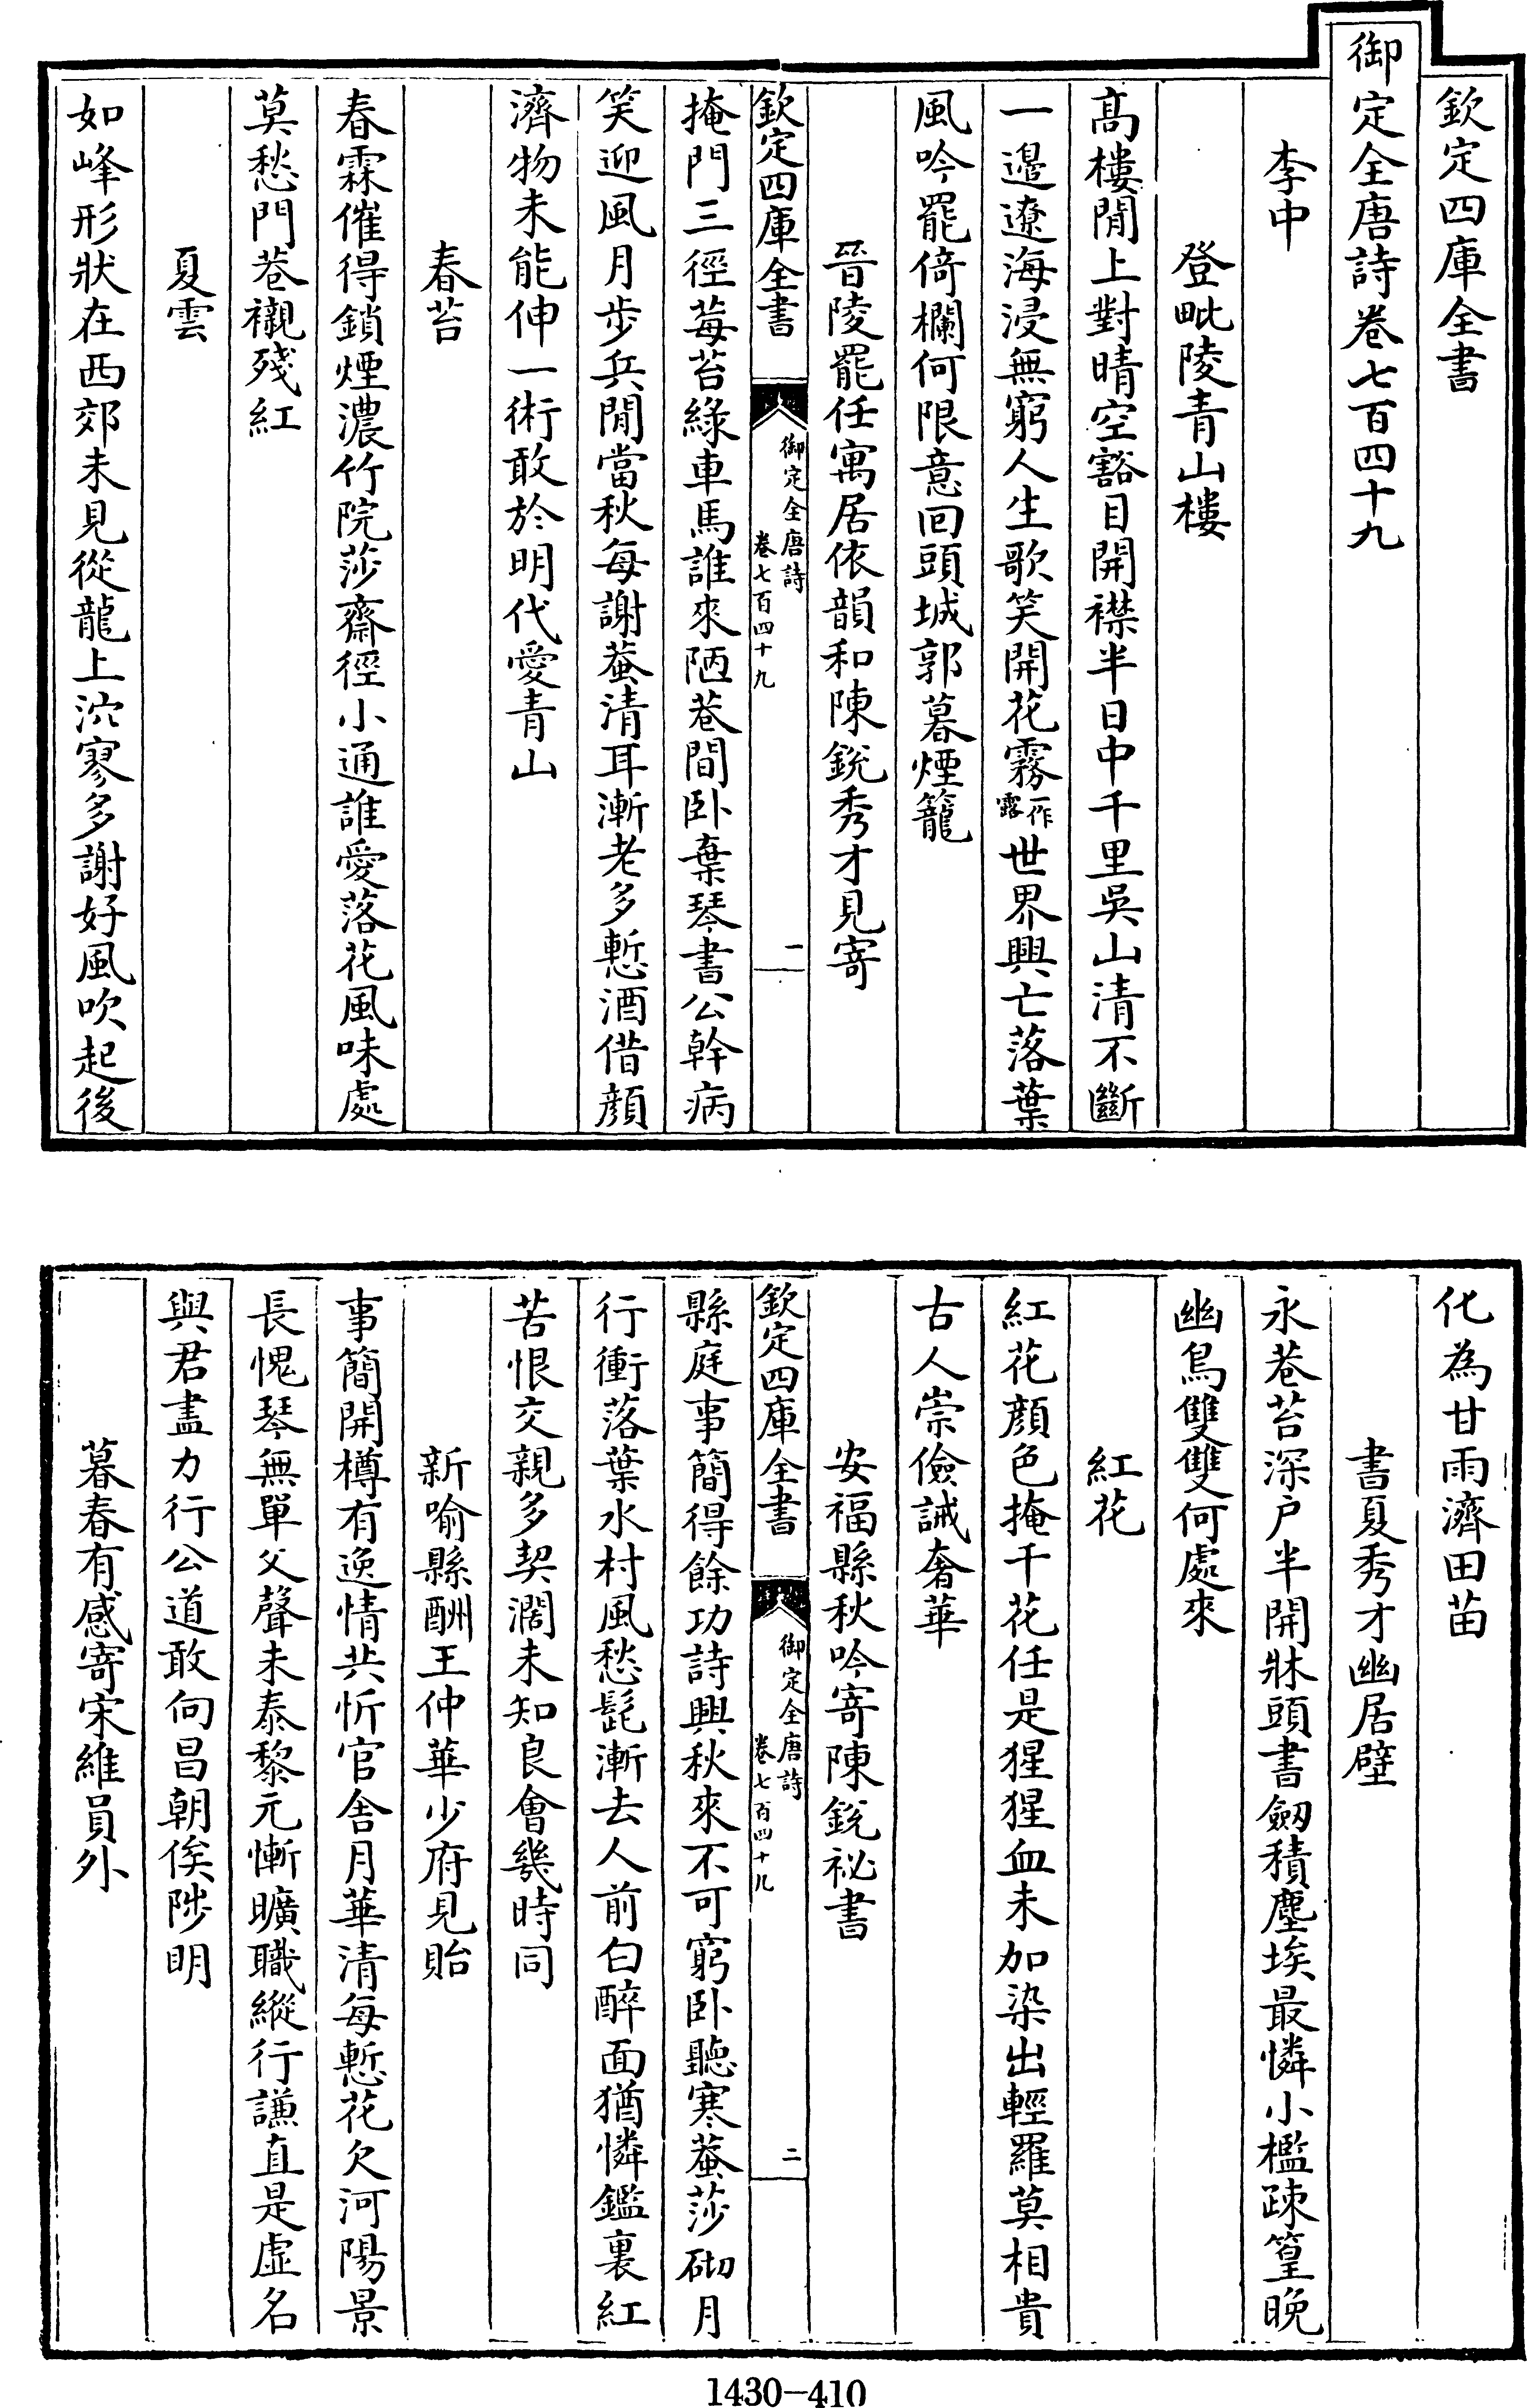 欽定四庫全書
御定全唐詩卷七百四十九
李中
登毗陵青山樓
髙樓閒上對晴空豁目開襟半日中千里吳山清不斷
一邉遼海浸無窮人生歌笑開花霧一作露世界興亡落葉
風吟罷倚欄何限意回頭城郭暮煙籠
晉陵罷任寓居依韻和陳鋭秀才見寄
欽定四庫全書
御定全唐詩
卷七百四十九
一
掩門三徑莓苔綠車馬誰來陋巷間卧棄琴書公幹病
笑迎風月步兵閒當秋每謝蛩清耳漸老多慙酒借顔
濟物未能伸一術敢於明代愛青山
春苔
春霖催得鎖煙濃竹院莎齋徑小通誰愛落花風味處
莫愁門巷襯殘紅
夏雲
如峰形狀在西郊未見從龍上泬寥多謝好風吹起後
化為甘雨濟田苗
書夏秀才幽居壁
永巷苔深户半開牀頭書劒積塵埃最憐小檻疎篁晚
幽鳥雙雙何處來
紅花
紅花顔色掩千花任是猩猩血未加染出輕羅莫相貴
古人崇儉誡奢華
安福縣秋吟寄陳鋭祕書
欽定四庫全書
御定全唐詩
卷七百四十九
二
縣庭事簡得餘功詩興秋來不可窮卧聽寒蛩莎砌月
行衝落葉水村風愁髭漸去人前白醉面猶憐鑑裏紅
苦恨交親多契濶未知良會幾時同
新喻縣酬王仲華少府見貽
事簡開樽有逸情共忻官舍月華清每慙花欠河陽景
長愧琴無單父聲未泰黎元慚曠職縱行謙直是虛名
與君盡力行公道敢向昌朝俟陟明
暮春有感寄宋維員外
1430-410